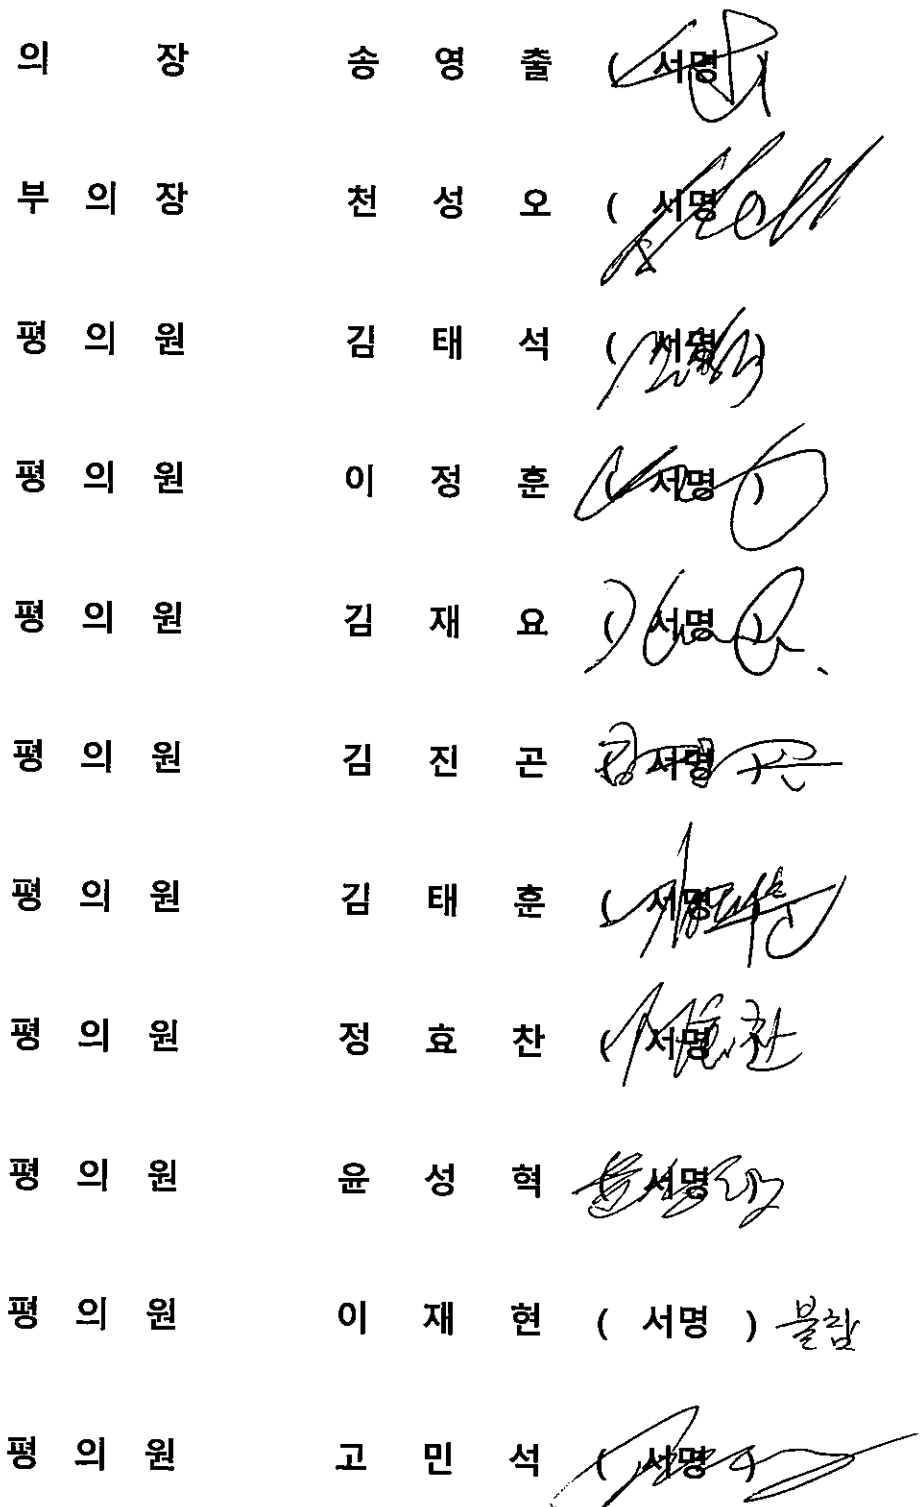 의 장 송 영 출 ( 서명 )
부 의 장 천 성 오 ( 서명 )
평 의 원 김 태 석 ( 서명 )
평 의 원 이 정 훈 ( 서명 )
평 의 원 김 재 요 ( 서명 )
평 의 원 김 진 곤 ( 서명 )
평 의 원 김 태 훈 ( 서명 )
평 의 원 정 효 찬 ( 서명 )
평 의 원 윤 성 혁 ( 서명 )
평 의 원 이 재 현 ( 서명 ) 불참
평 의 원 고 민 석 ( 서명 )